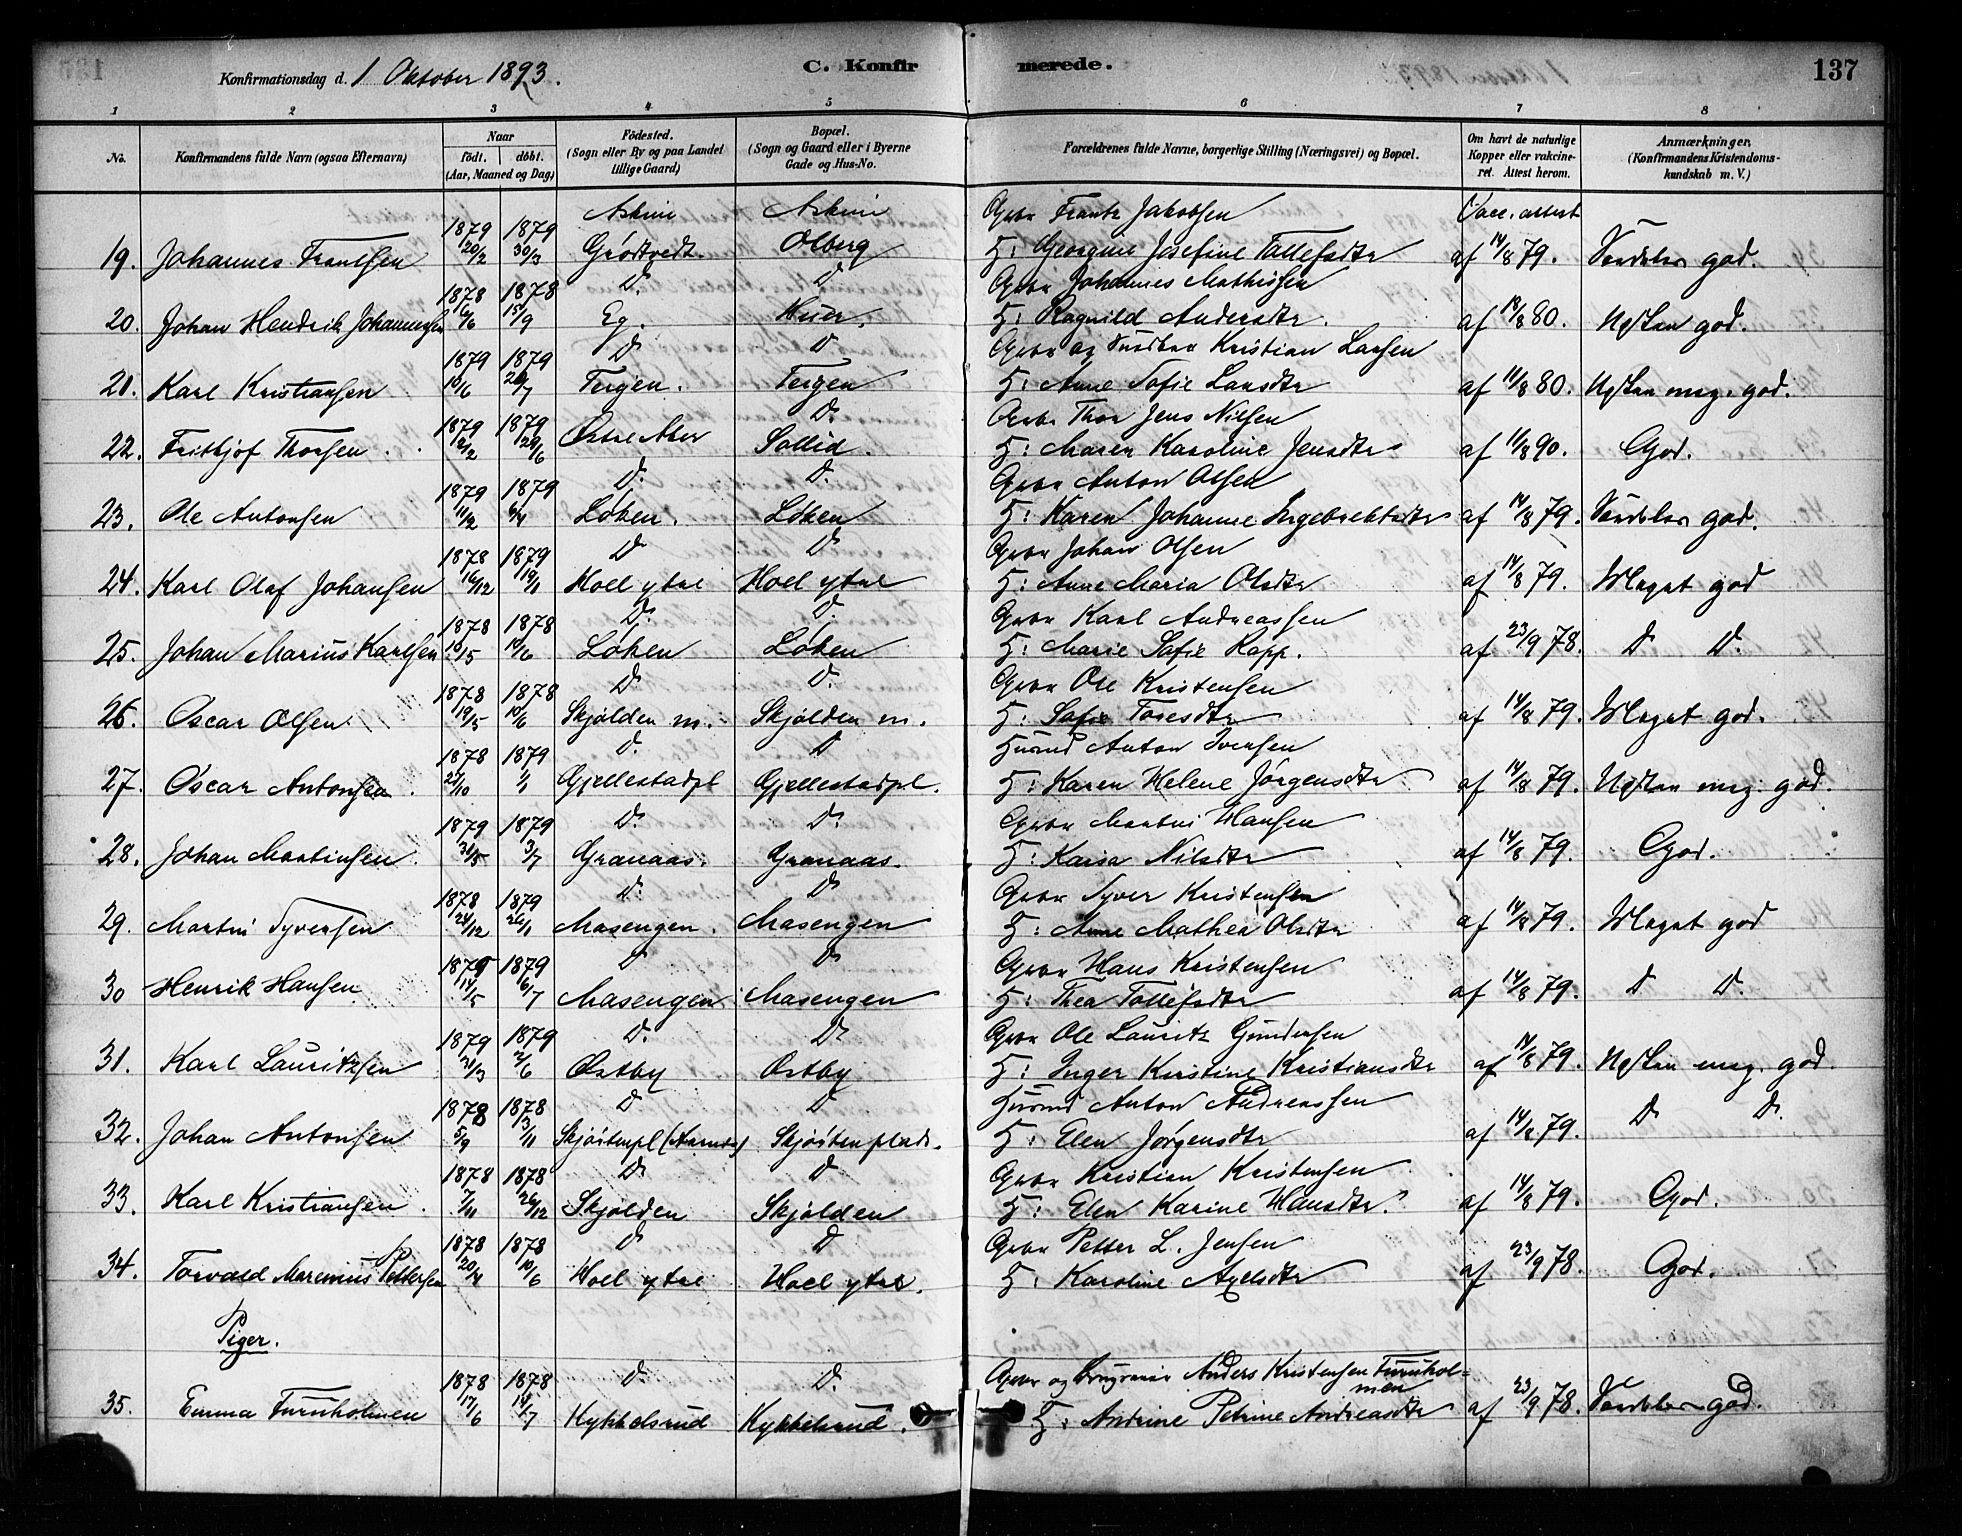 Konfirmationsdag d. 1 Oktober 1893.
C. Konfirmerede.
137
1 2 3 4 5 6 7 8
No.
Konfirmandens fulde Navn (ogsaa Efternavn)
Naar
født. døbt.
(Aar, Maaned og Dag)
Fødested.
(Sogn eller By og paa Landet
tillige Gaard)
Bopæl.
(Sogn og Gaard eller i Byerne
Gade og Hus-No.
Forældrenes fulde Navne, borgerlige Stilling (Næringsvei) og Bopæl.
Om havt de naturlige
Kopper eller vakcine-
ret. Attest herom.
Anmærkninger.
(Konfirmandens Kristendoms-
kundskab m. V.)
1879 1879 Askim Askim Gbr Frantz Jakobsen Vacc. attest
19. Johannes Frantsen 20/2 30/3 Grøtvedt. Olberg H: Georgine Josefine Tollefsdtr af 14/8 79. Særdeles god.
1878 1878 D. D Gbr Johannes Mathisen
20. Johan Hendrik Johannesen 6/6 15/9 Eg. Huer. H: Ragnild Andersdtr. af 18/8 80. Næsten god.
1879 1879 D D Gbr og Snedker Kristian Larsen
21. Karl Kristiansen 10/6 20/7 Tergen. Tergen H: Anne Sofie Larsdtr af 11/8 80. Næsten meg. god.
1879 1879 D. Gbr Thor Jens Nilsen
22. Frithjof Thorsen. 12/2 29/6 Østre Aker Sollid. H: Maren Karoline Jensdtr af 11/8 90. God.
1879 1879 D. D. Gbr Anton Olsen
23. Ole Antonsen 11/2 6/4 Løken. Løken H: Karen Johanne Ingebrektsdtr af 14/8 79. Særdeles god.
1878 1879 D D Gbr Johan Olsen
24. Karl Olaf Johansen 16/12 19/1 Hoel ytre Hoel ytre H: Anne Maria Olsdtr af 14/8 79. Meget god
1878 1878 D. D. Gbr Karl Andreassen
25. Johan Marius Karlsen 10/15 10/6 Løken Løken H: Marie Sofie Rapp. af 23/9 78. D D.
1878 1878 D. D. Gbr Ole Kristensen
26. Oscar Olsen 19/5 10/6 Skjølden m. Skjølden m. H: Sofie Toresdtr af 14/8 79. Meget god.
1878 1879 D. D Husmd Anton Iversen
27. Oscar Antonsen. 25/10 1/1 Gjellestadpl Gjellestadpl. H: Karen Helene Jørgensdtr af 14/8 79. Næsten meg. god.
1879 1879 D. D. Gbr Martin Hansen
28. Johan Martinsen. 31/5 3/7 Granaas. Granaas. H: Karen Nilsdtr af 14/8 79. God.
1878 1879 D. D Gbr Syver Kristensen
29. Martin Syversen 24/12 26/1 Masengen. Masengen H: Anne Mathea Olsdtr af 14/8 79. Meget god
1879 1879 D D Gbr Hans Kristensen
30 Henrik Hansen 14/5 6/7 Masengen Masengen H: Thea Tollefsdtr af 14/8 79. D D.
1879 1879 D. D. Gbr Ole Lauritz Gundersen
31. Karl Lauritzsen 31/3 2/6 Østby Østby H: Inger Kirstine Kristiansdtr af 14/8 79. Næsten meg. god.
1878 1878 D D Husmd Anton Andreassen
32. Johan Antonsen 5/9 3/11 Skjøitenpl Skjøitenplads. H: Elen Jørgensdtr af 14/8 79. D D.
1878 1878 D D Gbr Kristian Kristensen
33. Karl Kristiansen. 7/11 26/12 Skjølden Skjølden H: Elen Karine Hansdtr. af 14/8 79. God.
1878 1878 D D Gbr Petter L. Jensen
34. Torvald Marenius Pettersen 20/4 10/6 Hoel ytre Hoel ytre. H: Karoline Axelsdtr af 23/9 78. God.
Piger.
1878 1878 D. D. Gbr og Brugseier Anders Kristensen Furuhol=
men
35. Emma Furuholmen 17/6 14/7 Kykkelsrud Kykkelsrud. H: Andrine Petrine Andreasdtr af 23/9 78. Særdeles god.